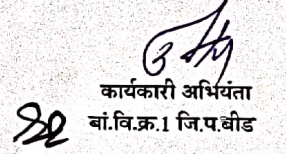 कार्यकारी अभियंता
बां.वि.क्र.1 जि.प.बीड